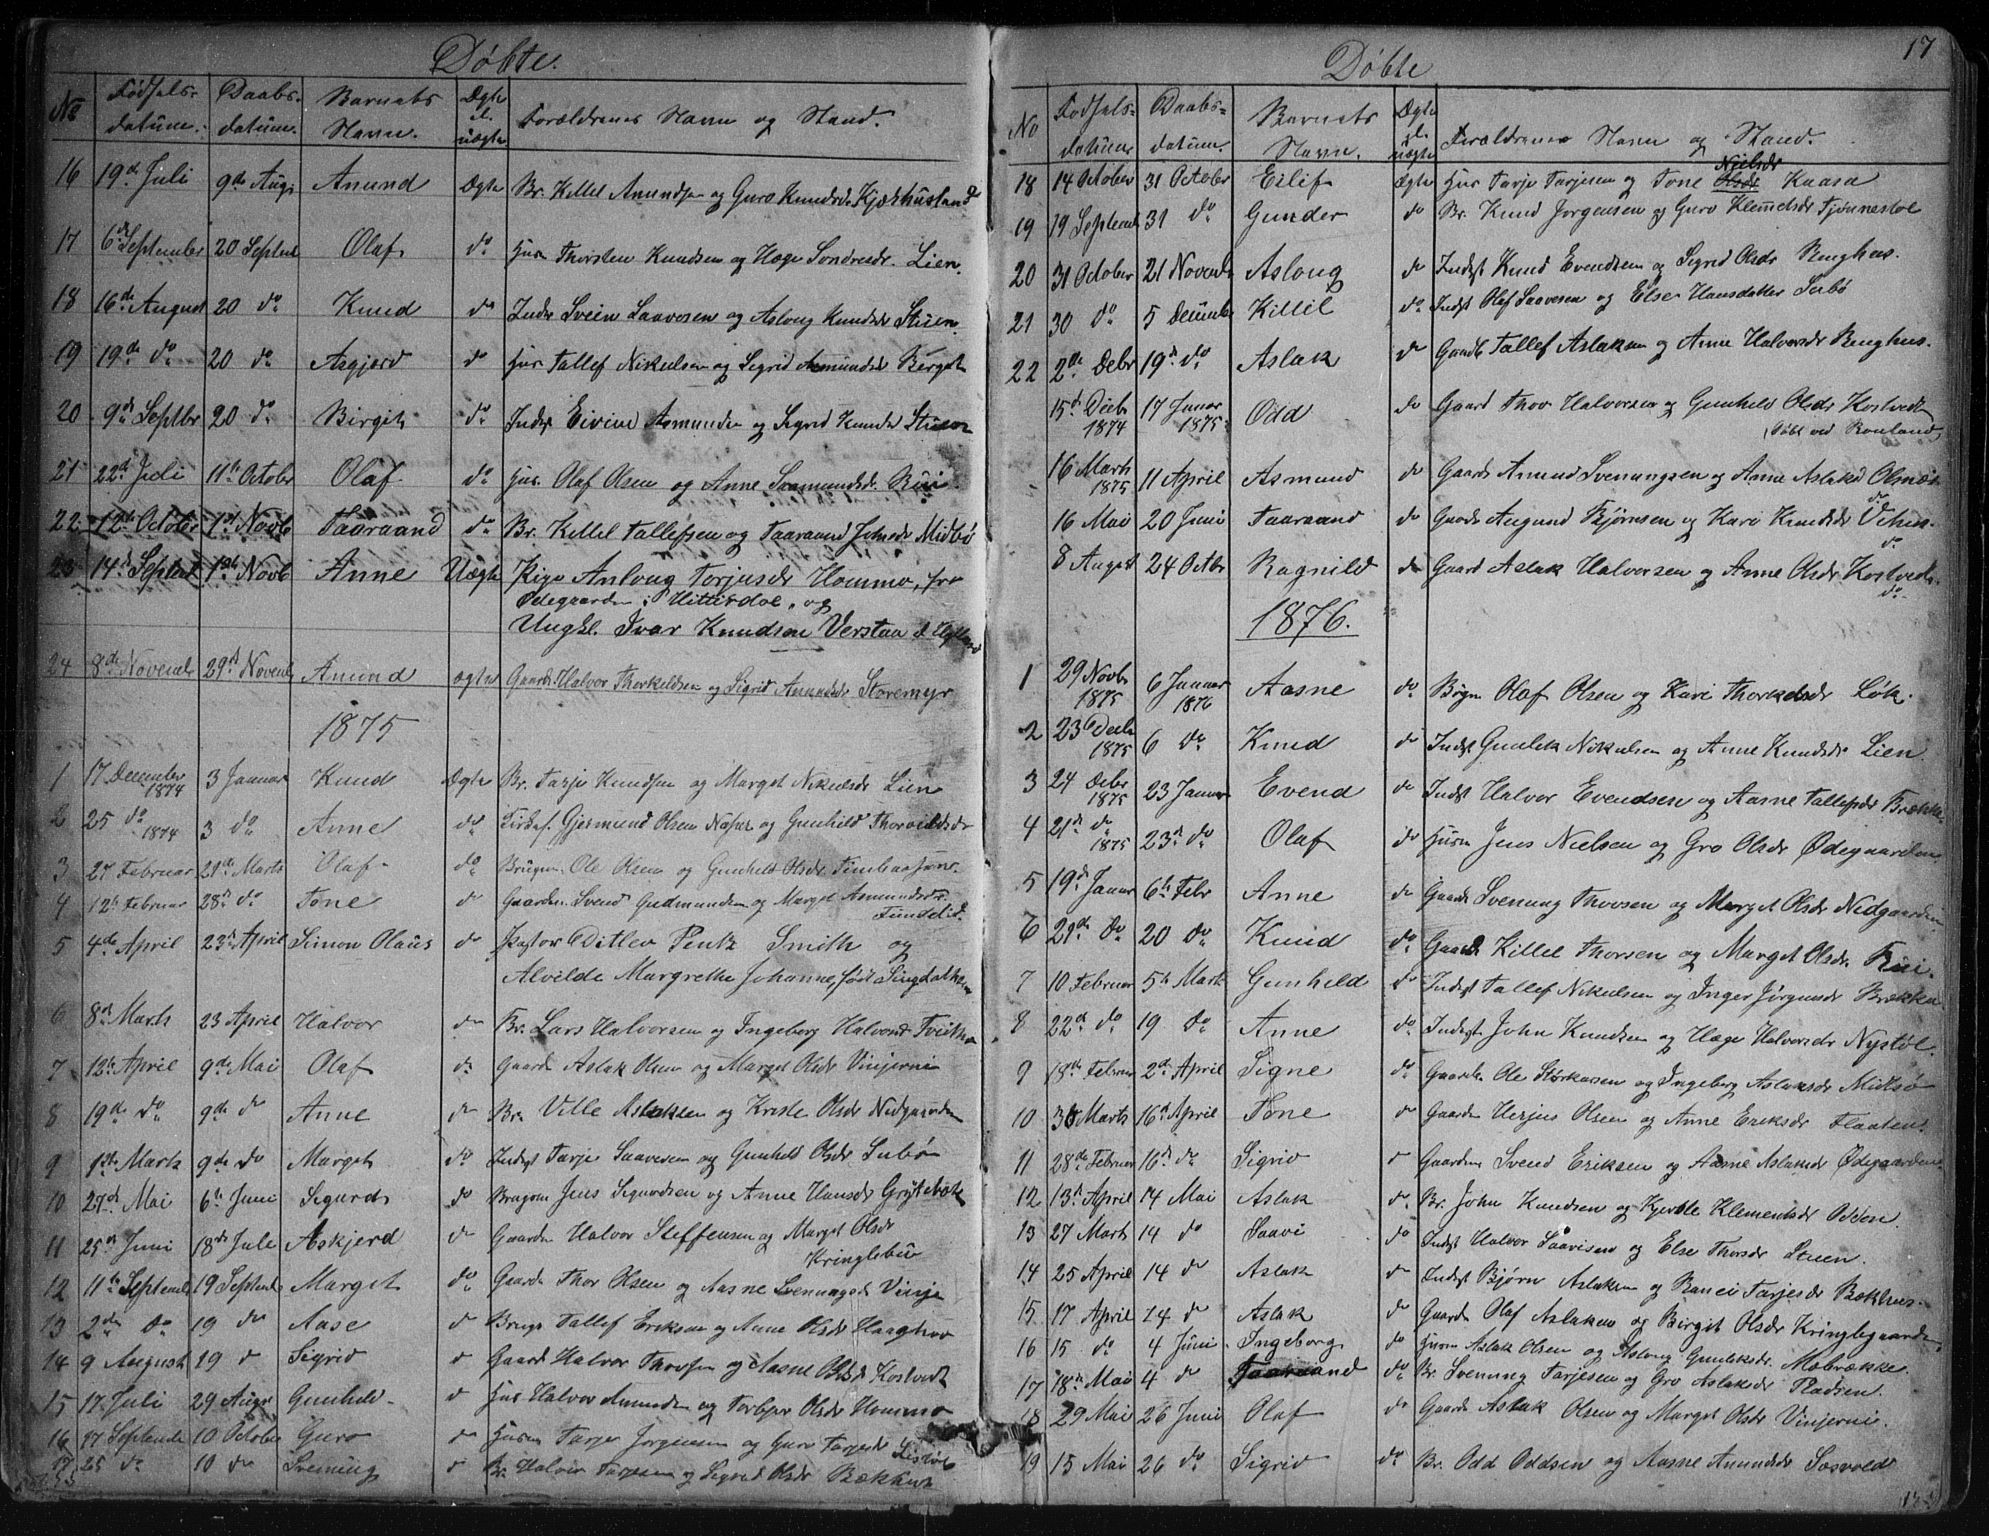 Døbte.
No Fødsels-datum. Daabs-datum. Barnets Navn. Ægte el. uægte Forældrenes Navn og Stand.
16 19de Juli 9de Aug. Amund Ægte Br. Kittel Amundsen og Guro Knudsd. Kjæshusland
17 6te September 20 Septemb Olaf do Husm Thorsten Knudsen og Hæge Sondresdr. Lien.
18 16de August 20 do Knud do Inds Svein Saavesen og Asloug Knudsdr Stuen.
19 19de do 20 do Asgjerd do Hus Tallef Nikulsen og Sigrid Asmundsdr Berget
20 9de Septbr 20 do Birgit do Indst Eivind Asmundsen og Sigrid Knudsdr Stuen
21 22de Juli 11te October Olaf do Hus. Olaf Olsen og Anne Saamundsdr. Bui
22 12te October 1ste Novb Taaraand do Br. Kittel Tallefsen og Taaraand Johnsdr Midbø
23 14de Septemb 1ste Novb Anne Uægte Pige Anlaug Torjusdr Hommo, fra
Ødegaarden i Hitterdal, og
Ungkl. Ivar Knudsen Verstaa
24 8de Novemb 29de Novemb Amund ægte Gaardb. Halvor Thorkeldsen og Sigrid Amundsdr Storemyr
1875
1 17 December 1874 3 Januar Knud Ægte Br. Tarje Knudsen og Marget Nikulsdr Lien
2 25 do 1874 3 do Anne do Gjermund Olsen og Gunhild Thorvildsdr
3 27 Februar 21de Marts Olaf do Brugsm. Ole Olsen og Gunhild Olsdr
4 12te Februar 28de do Tone do Gaardm. Svend Gudmundsen og Marget Asmundsdr
5 4de April 23de April Simon Olaus do Pastor Ditlev Pentz Smith og
Alvilde Margrethe Johanne, født Lingdathsen
6 8de Marts 23 April Halvor do Br. Lars Halvorsen og Ingeborg Halvorsd Tveito
7 12te April 9de Mai Olaf do Gaardb Aslak Olsen og Marget Olsdr Vinjerui
8 19de do 9de do Anne do Br. Ville Aslaksen og Kristi Olsdr Nedgaarden
9 1ste Marts 9de do Marget do Indst Tarje Saavesen og Gunhild Olsdr Subø
10 27de Mai 6te Juni Sigurd do Brugsm Jens Sigurdsen og Anne Hansdr Grytebæk
11 25de Juni 18de Juli Askjerd do Gaardm Halvor Steffensen og Marget Olsdr
Kringlebu
12 11te Septemb 19 Septemb Marget do Gaardm Thor Olsen og Aasne Svenungsd Vinje
13 2den do 19 do Aase do Brugs Tallef Eriksen og Anne Olsdr Haaghov
14 9 August 19 do Sigrid do Gaard Halvor Thovsen og Aasne Olsd Kostvedt
15 17 Juli 29 Aug. Gunhild do Hus Halvor Amundsen og Torbjør Olsdr Hommo
16 17 Septembr 10 October Guro do Husm Tarje Jorgensen og Guro Tarjesdr
17 25 do 10 do Svenung do Br. Halvor Tarjesen og Sigrid Olsdr Bækkhus
17
Døbte
No Fødsels-datum Daabs-datum. Barnets Navn. Ægte el. uægte Forældrenes Navn og Stand.
18 14 October 31 October Eilif Ægte Hus Tarje Tarjesen og Tone Olsdr Nielsdr Kaasa
19 19 Septemb 31 do Gunder do Br. Knud Jorgensen og Guro Klemetsdr Tjønnestøl
20 31 October 21 Novemb Aslaug do Indst Knud Evendsen og Sigrid Olsdr Renghus.
21 30 do 5 Decembr Killil do Indst Olaf Saavesen og Else Hansdatter Subø
22 2den Debr 19de do Aslak do Gaardb Tallef Aslaksen og Anne Halvorsdr Renghus.
15de Decb 1874 17 Januar 1875 Odd do Gaard Thov Halvorsen og Gunhild Olsdr Kostvedt
(døbt ved Rouland)
16 Marts 1875 11 April Asmund do Gaardb Amund Svenungsen og Anne Aslaksd
16 Mai 20 Juni Taaraand do Gaardb Augund Bjørnsen og Kari Knudsdr do
8 August 24 Octbr Ragnild do Gaard Aslak Halvorsen og Anne Olsdr Kostvedt
do
1876.
1 29 Novbr 1875 6 Januar 1876 Aasne do Bygm Olaf Olsen og Kari Thorkelsdr Løk.
2 23 Decb 1875 6 do Knud do Indst Gunlek Nikulsen og Anne Knudsdr Lien
3 24 Debr 1875 23 Januar Evend do Indst Halvor Evendsen og Aasne Tallefsdr Brække
4 21de do 1875 23de do Olaf do Husm Jens Nielsen og Gro Olsdr Ødegaarden
5 19de Januar 6te Febr Anne do Gaardb Svenung Thovsen og Marget Olsdr Nedgaarden
6 29de do 20 do Knud do Gaard Killel Thorsen og Marget Olsdr Bui.
7 10 Februar 5te Marts Gunhild do Indst Tallef Nikulsen og Inger Jørgensdr Brækka
8 22de do 19 do Anne do Indst John Knudsen og Hæge Halvorsdr Nystøl.
9 18de Februar 2de April Signe do Gaardb Ole Størkersen og Ingeborg Aslaksdr Midbø
10 30 Marts 16de April Tone do Gaardm Herjus Olsen og Anne Eriksdr Flaaten
11 28de Februar 16de do Sigrid do Gaardm Svend Eriksen og Aasne Aslaksd Ødegaarden
12 13de April 14 Mai Aslak do Br. John Knudsen og Kjersti Klemetsdr Odden.
13 27 Marts 14 do Saavi do Indst Halvor Saavisen og Else Thorsdr Stuen.
14 25 April 14 do Aslak do Indst Bjørn Aslaksen og Ranei Tarjesdr Bækhus.
15 17 April 14 do Aslak do Gaardb Olaf Aslaksen og Birgit Olsdr Kringlegaarden
16 15 do 4 Juni Ingeborg do Husm Aslak Olsen og Aslaug Gunleksdr. Mobrække.
17 18de Mai 4 do Taaraand do Br. Svenung Tarjesen og Gro Aslaksdr Pladsen.
18 29 Mai 26 Juni Olaf do Gaardb Aslak Olsen og Marget Olsdr Vinjerui.
19 15 Mai 26 do Sigrid do Br. Odd Oddsen og Aasne Amundsdr Søsvold